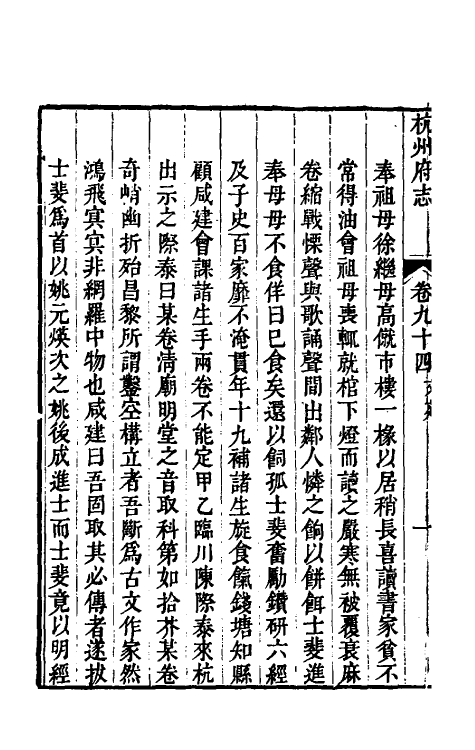 杭州府志
卷九十四
奉祖母徐繼母高僦市樓一椽以居稍長喜讀書家貧不
常得油會祖母喪輒就棺下燈而讀之嚴寒無被覆衰麻
卷縮戰慄聲與歌誦聲間出鄰人憐之餉以餅餌士斐進
奉母母不食佯曰已食矣還以飼孤士斐奮勵鑽研六經
及子史百家靡不淹貫年十九補諸生旋食餼錢塘知縣
顧咸建會課諸生手兩卷不能定甲乙臨川陳際泰來杭
出示之際泰曰某卷清廟明堂之音取科第如拾芥某卷
奇峭幽折殆昌黎所謂鑿空構立者吾斷爲古文作家然
鴻飛冥冥非網羅中物也咸建曰吾固取其必傳者遂拔
士斐爲首以姚元煐次之姚後成進士而士斐竟以明經